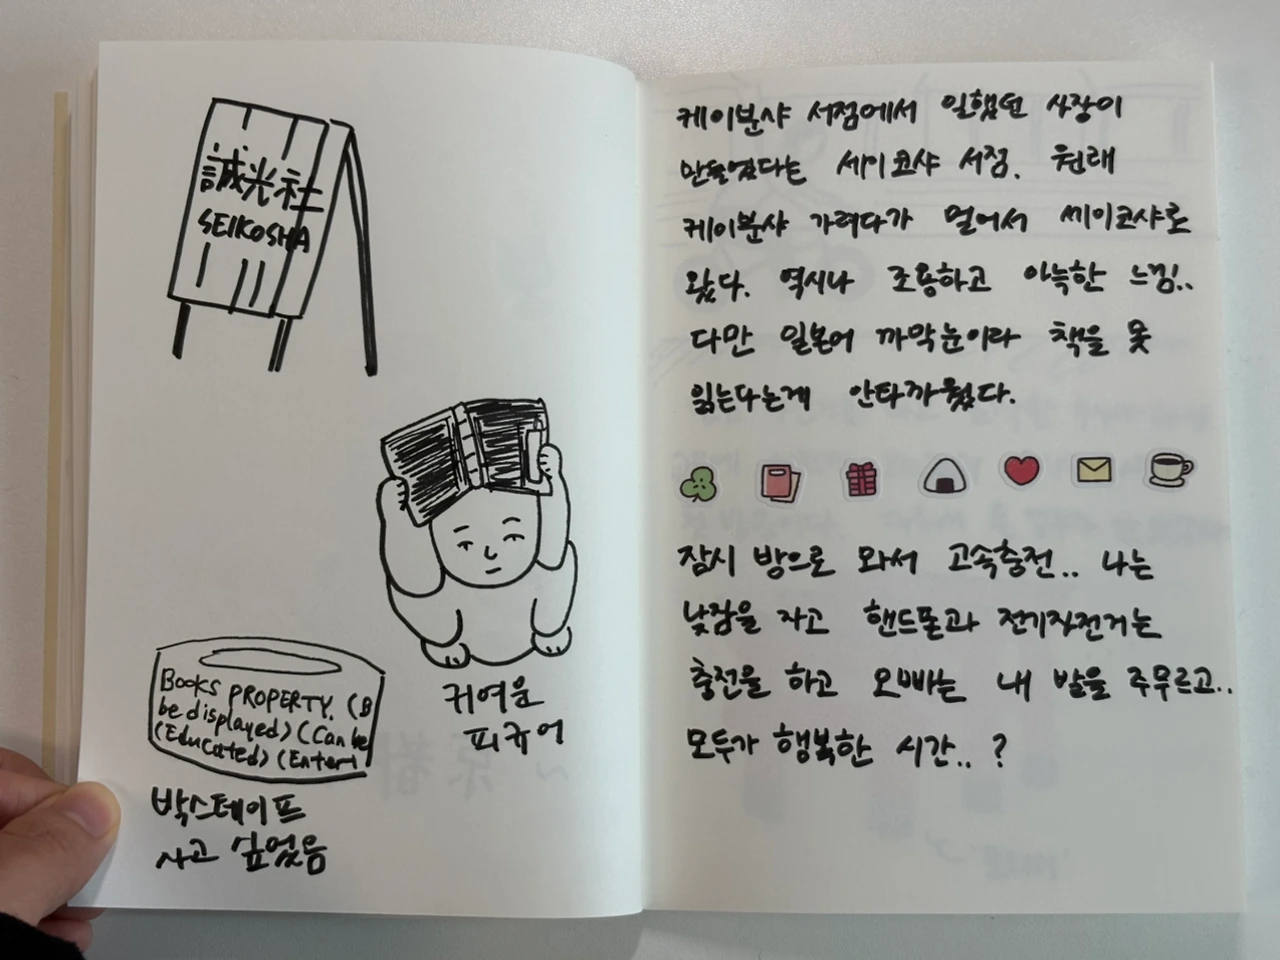 誠光社
SEIKOSHA
귀여운
피규어
BOOKS PROPERTY. (B
be displayed) (Can be
(Educated) (Entert
박스테이프
사고 싶었음
케이분샤 서점에서 일했던 사장이
만들었다는 세이코샤 서점. 원래
케이분샤 가려다가 멀어서 세이코샤로
왔다. 역시나 조용하고 아늑한 느낌..
다만 일본어 까막눈이라 책을 못
읽는다는게 안타까웠다.
잠시 방으로 와서 고속충전.. 나는
낮잠을 자고 핸드폰과 전기자전거는
충전을 하고 오빠는 내 발을 주무르고..
모두가 행복한 시간.. ?